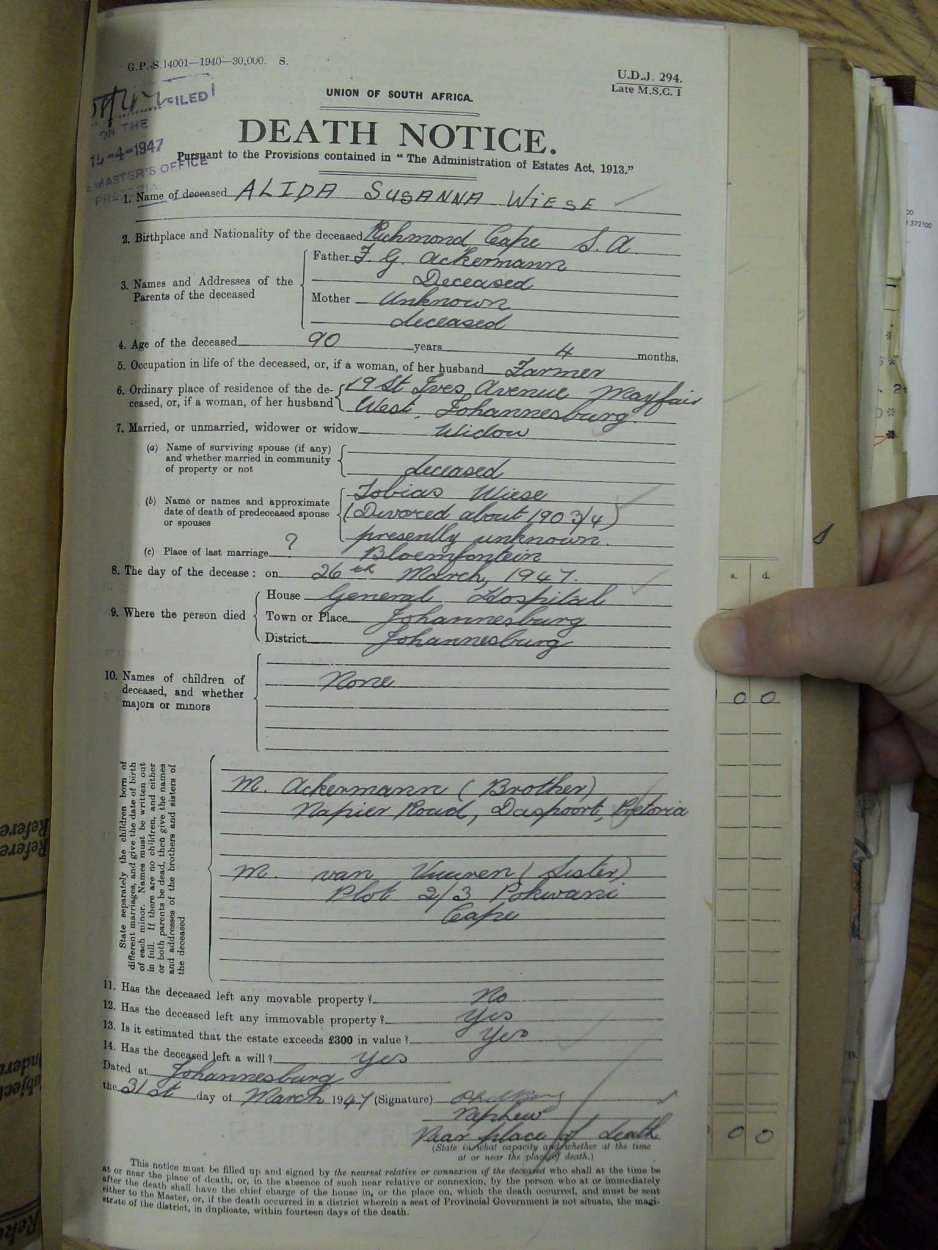 G.P.-S.14001—1940—30,000. S.
U.D.J. 294.
Late M.S.C. 1
UNION OF SOUTH AFRICA.
FILED
ON THE
-4-1947
MASTER'S OFFICE
DEATH NOTICE.
Pursuant to the Provisions contained in "The Administration of Estates Act, 1913."
1. Name of deceased ALIDA SUSANNA WIESE
2. Birthplace and Nationality of the deceased Richmond Cape S.A.
3. Names and Addresses of the Parents of the deceased
Father F. G. Ackermann
Deceased
Mother Unknown
deceased
4. Age of the deceased 90 years 4 months.
5. Occupation in life of the deceased, or, if a woman, of her husband Farmer
6. Ordinary place of residence of the de-
ceased, or, if a woman, of her husband
19 St Ives Avenue Mayfair
West. Johannesburg.
7. Married, or unmarried, widower or widow Widow
(a) Name of surviving spouse (if any)
and whether married in community
of property or not
deceased
(b) Name or names and approximate
date of death of predeceased spouse
or spouses
Tobias Wiese
(Divored about 1903/4)
presently unknown.
(c) Place of last marriage ? Bloemfontein
8. The day of the decease: on 26th March, 1947.
9. Where the person died
House General Hospital
Town or Place Johannesburg
District Johannesburg
10. Names of children of
deceased, and whether
majors or minors
None
State separately the children born of
different marriages, and give the date of birth
of each minor. Names must be written out
in full. If there are no children, and either
or both parents be dead, then give the names
and addresses of the brothers and sisters of
the deceased
M. Ackermann (Brother)
Napier Road, Daspoort, Pretoria
M. van Vuuren (Sister)
Plot 2/3 Pokwani
Cape
11. Has the deceased left any movable property? No
12. Has the deceased left any immovable property? Yes
13. Is it estimated that the estate exceeds £300 in value? Yes
14. Has the deceased left a will? Yes
Dated at Johannesburg
the 31st day of March 1947 (Signature)
Nephew
Near place of death
(State in what capacity and whether at the time
at or near the place of death.)
This notice must be filled up and signed by the nearest relative or connexion of the deceased who shall at the time be
at or near the place of death, or, in the absence of such near relative or connexion, by the person who at or immediately
after the death shall have the chief charge of the house in, or the place on, which the death occurred, and must be sent
either to the Master, or, if the death occurred in a district wherein a seat of Provincial Government is not situate, the magi-
strate of the district, in duplicate, within fourteen days of the death.
s. d.
0 0
0 0
372100